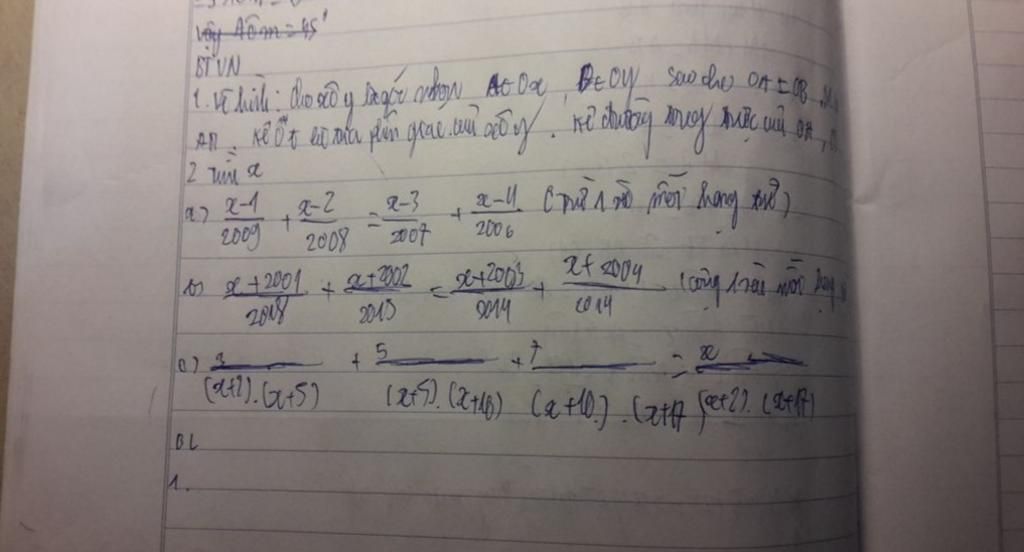 Vậy AÔm = 45°
BTVN
1. Vẽ hình: Cho xÔy là góc nhọn A∈Ox, B∈Oy sao cho OA = OB.
Kẻ Ot là tia phân giác của xÔy. Kẻ đường trung trực của OA,
2 Tìm x
a) x-1/2009 + x-2/2008 = x-3/2007 + x-4/2006 (trừ 1 vào mỗi hạng tử)
b) x+2001/2018 + x+2002/2015 = x+2003/2014 + x+2004/2014 (cộng 1 vào mỗi hạng
c) 3/(x+2).(x+5) + 5/(x+5).(x+10) + 7/(x+10).(x+17 = x/(x+2).(x+17)
BL
1.